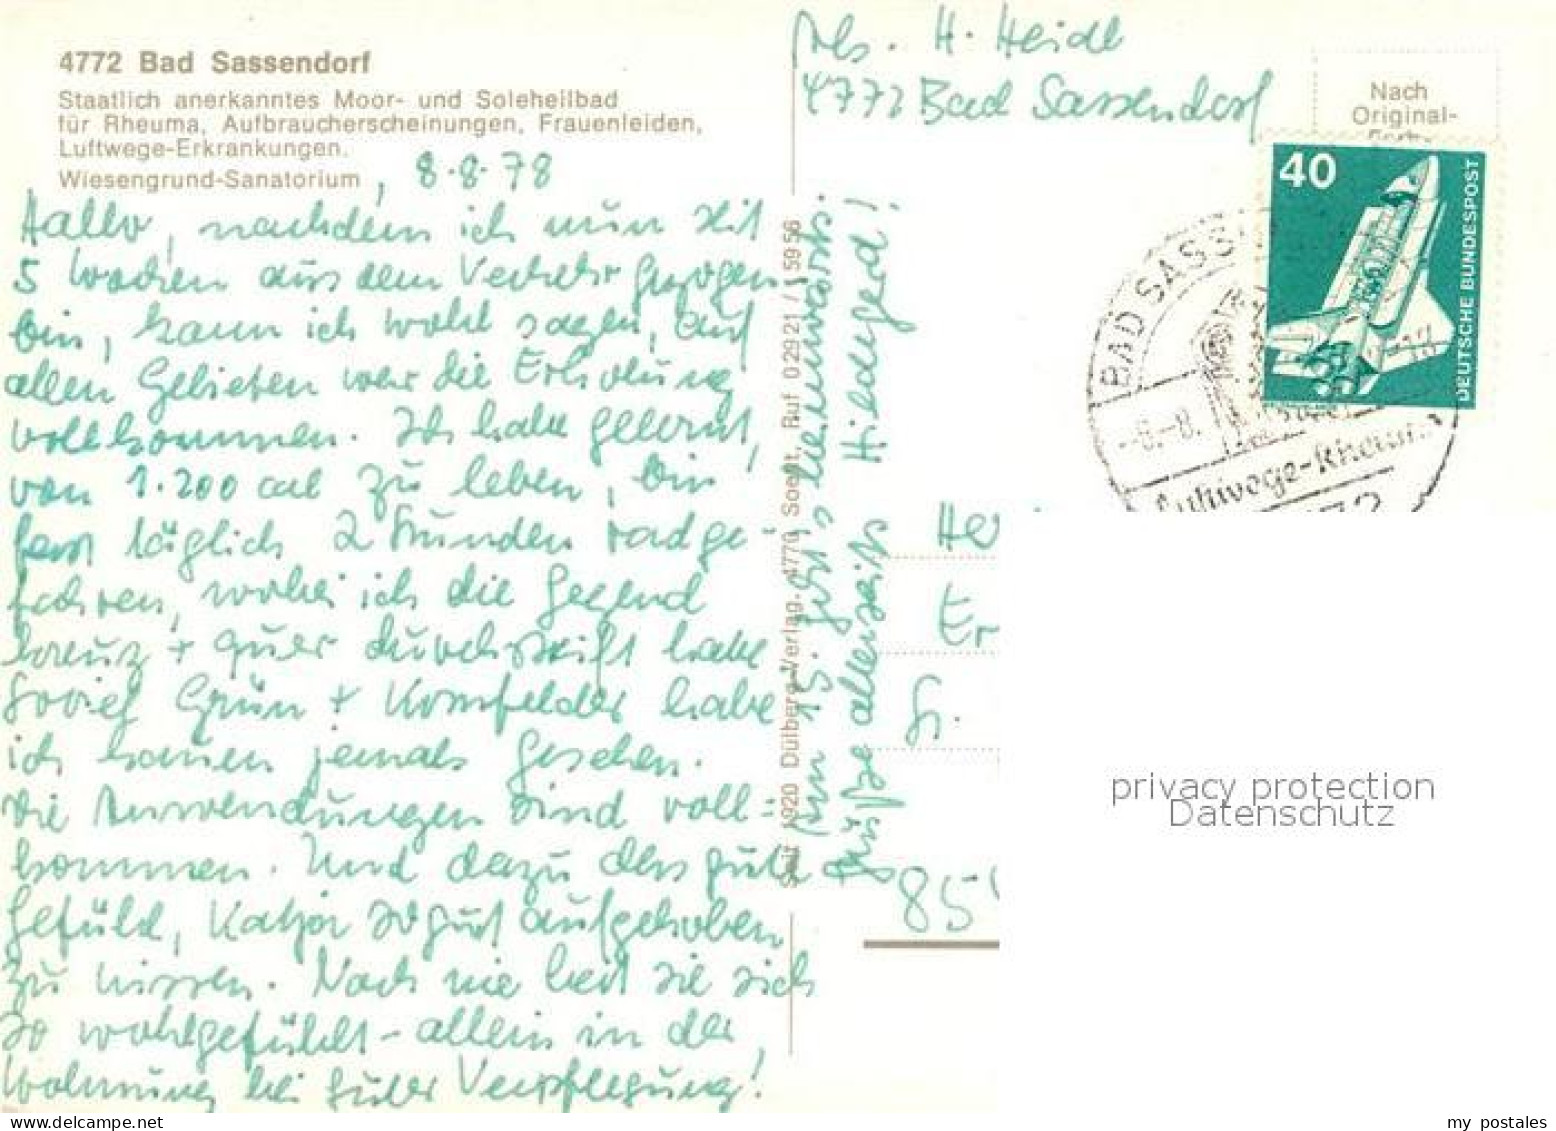 4772 Bad Sassendorf
Staatlich anerkanntes Moor- und Soleheilbad
für Rheuma, Aufbraucherscheinungen, Frauenleiden,
Luftwege-Erkrankungen.
Wiesengrund-Sanatorium, 8.8.78
Hallo, nachdem ich nun seit
5 Wochen aus dem Verkehr gezogen
bin, kann ich wohl sagen, auf
allen Gebieten war die Erholung
vollkommen. Ich habe gelernt,
von 1.200 cal zu leben, bin
fast täglich 2 Stunden radge-
fahren, wobei ich die Gegend
kreuz + quer durchstreift habe
Soviel Grün + Kornfelder habe
ich kaum jemals gesehen.
Die Anwendungen sind voll-
kommen. Und dazu das gute
Gefühl, Katja so gut aufgehoben
zu wissen. Noch nie hat sie sich
so wohlgefühlt - allein in der
Wohnung bei guter Verpflegung!
Am 15. geht's heimwärts.
Grüße allerseits Hildegard!
Seit 1920 Dülberg-Verlag, 4770 Soest, Ruf 02921 / 5956
Abs. H. Heidl
4772 Bad Sassendorf
Nach
Original-
40
DEUTSCHE BUNDESPOST
BAD SASS
-8.-8.
Luftwege-Rheum
He
Er
Fr.
85
privacy protection
Datenschutz
my postales
delcampe.net